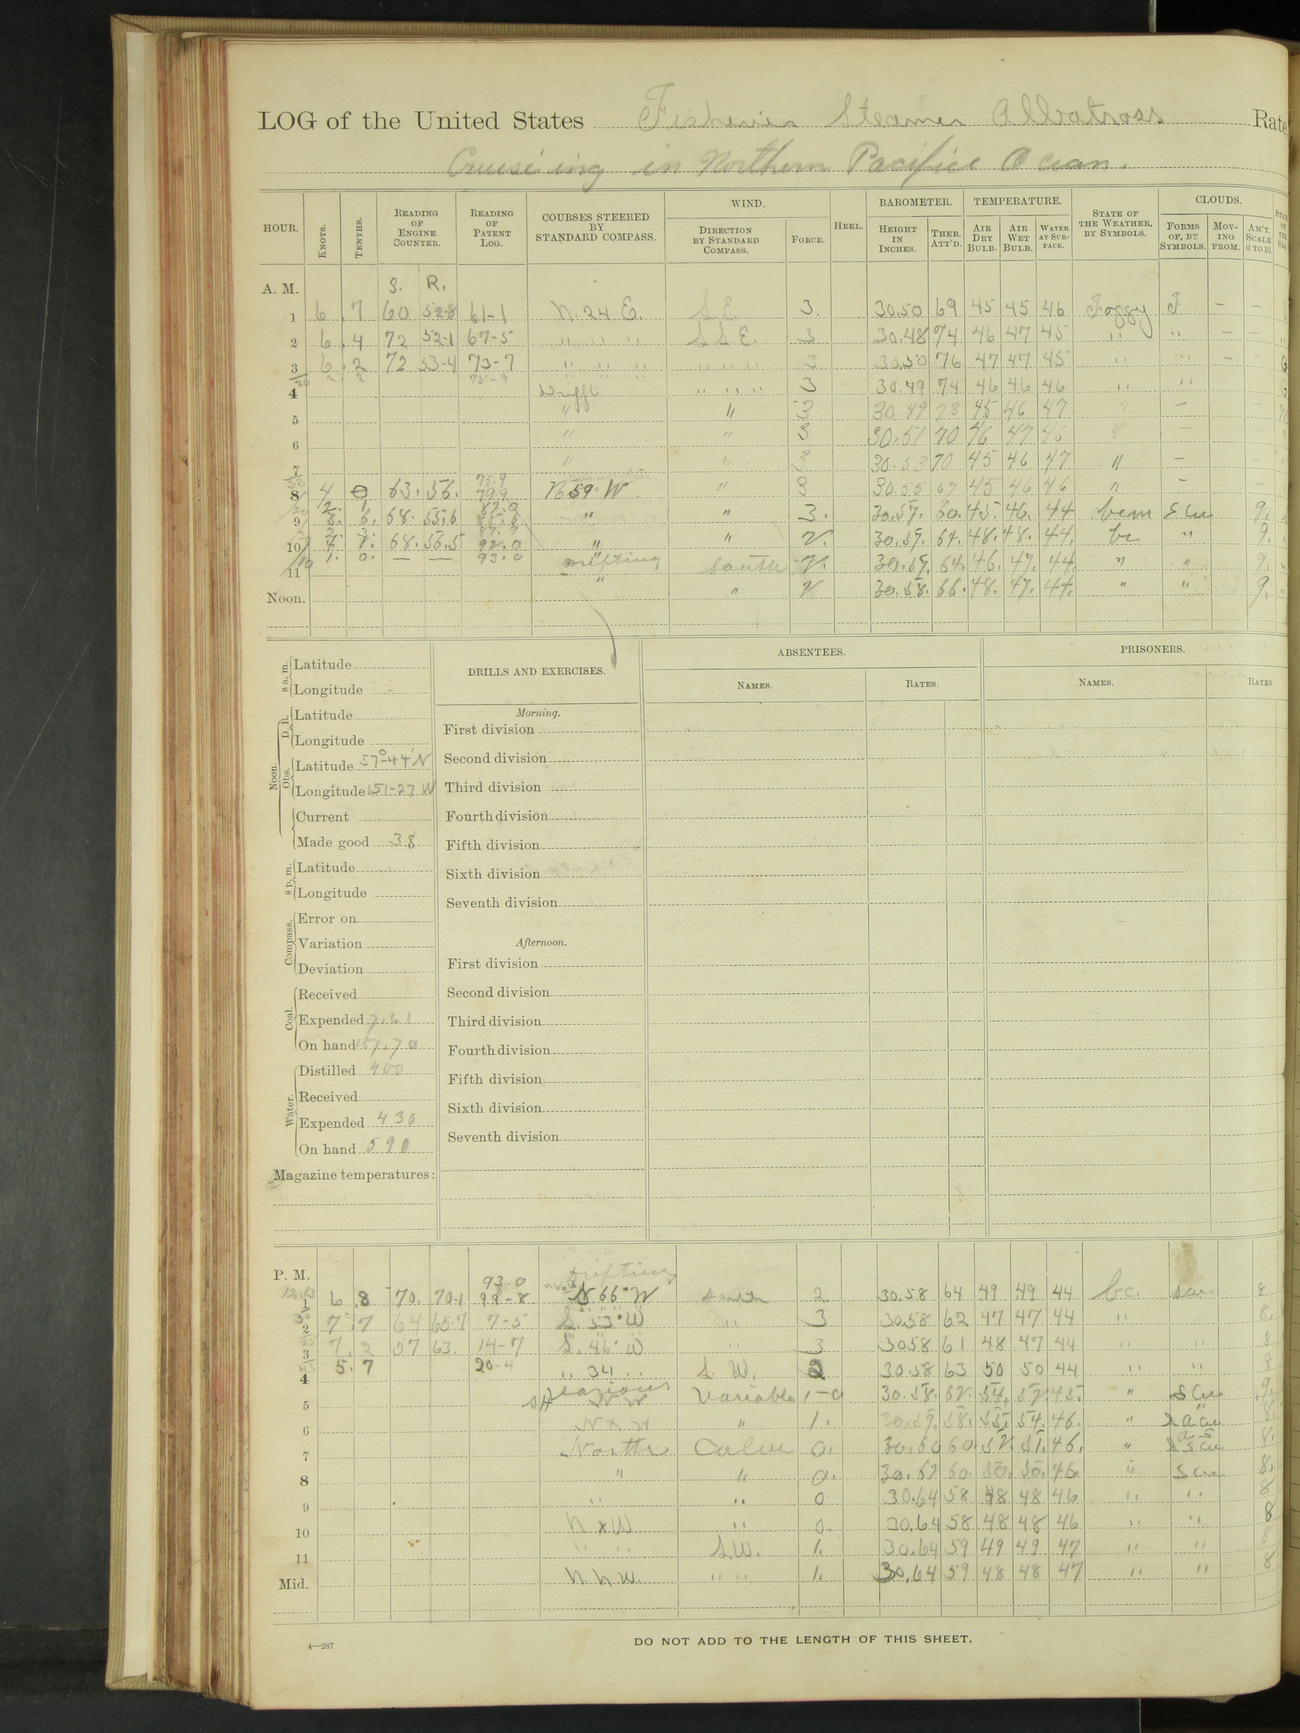 LOG of the United States Fisheries Steamer Albatross Rate
Cruiseing in Northern Pacific Ocean.
HOUR. KNOTS. TENTHS. READING OF ENGINE COUNTER. READING OF PATENT LOG. COURSES STEERED BY STANDARD COMPASS. WIND. DIRECTION BY STANDARD COMPASS. FORCE. HEEL. BAROMETER. HEIGHT IN INCHES. THER. ATT'D. TEMPERATURE. AIR DRY BULB. AIR WET BULB. WATER AT SUR-FACE. STATE OF THE WEATHER, BY SYMBOLS. CLOUDS. FORMS OF, BY SYMBOLS. MOV-ING FROM. AM'T. SCALE 0 TO 10.
A. M. S. R.
1 6 .7 60 52-8 61-1 N. 24 E. S.E. 3. 30.50 69 45 45 46 Foggy F – –
2 6 .4 72 52-1 67-5 " " " S S E. 3 30.48 74 46 47 45 " " – –
3 6 .2 72 53-4 73-7 " " " " " " 3 30.50 76 47 47 45 " " –
20 2. 2 75-9
4 Drifft " " " 3 30.49 74 46 46 46 " "
5 " " 3 30.49 73 45 46 47 " –
6 " " 3 30.51 70 46 47 46 " –
7 " " 3 30.53 70 45 46 47 " –
75.9
8 4 0 63. 56. 79.9 N 59° W " 3 30.55 67 45 46 46 " –
9 68. 55.6 " " 3. 30.57. 60. 45. 46. 44 bcm S Cu 9.
10 68. 56.5 92.0 " " 2. 30.57. 64. 48. 48. 44. bc " 9.
10 1. 0. — — 93.0 "
11 Drifting South 2. 30.59. 64. 46. 47. 44 " " 9.
Noon. " " 2 30.58. 66. 48. 47. 44. " " 9.
8 a. m. Latitude
Longitude
Noon. D. R. Latitude
Longitude
Obs. Latitude 57°-44'N
Longitude 151-27 W
Current
Made good 38
8 p. m. Latitude
Longitude
Compass. Error on
Variation
Deviation
Coal. Received
Expended 7.61
On hand 187.70
Water. Distilled 400
Received
Expended 430
On hand 590
Magazine temperatures:
DRILLS AND EXERCISES.
Morning.
First division
Second division
Third division
Fourth division
Fifth division
Sixth division
Seventh division
Afternoon.
First division
Second division
Third division
Fourth division
Fifth division
Sixth division
Seventh division
ABSENTEES.
NAMES. RATES.
PRISONERS.
NAMES. RATES.
P. M. 93.0 Drifting
1 6 .8 70. 70.1 99-8 S 66° W South 2 30.58 64 49 49 44 bc. 8
2 7 .7 64 65-7 7-5 S. 53° W " 3 30.58 62 47 47 44 " 8.
3 7. 2 57 63. 14-7 S. 46° W " 3 30.58 61 48 47 44 " " 8
4 5. 7 20-4 " 34 " S. W. 2 30.58 63 50 50 44 " " 8
5 Variable 1-0 30.58. 62. 54. 52. 45. " S Cu 9.
6 N x W " 1. 30.59. 58. 55. 54. 46. " 8.
7 North Calm 0. 30.60 60. 52. 51. 46. " 8.
8 " " 0. 30.62 60. 50. 50. 46. " S Cu 8.
9 " " 0 30.64 58 48 48 46 " " 8
10 N x W " 0. 30.64 58 48 48 46 " " 8
11 " " S.W. 1. 30.64 59 49 49 47 " " 8
Mid. N. N W. " " 1. 30.64 59 48 48 47 " " 8
4—287
DO NOT ADD TO THE LENGTH OF THIS SHEET.